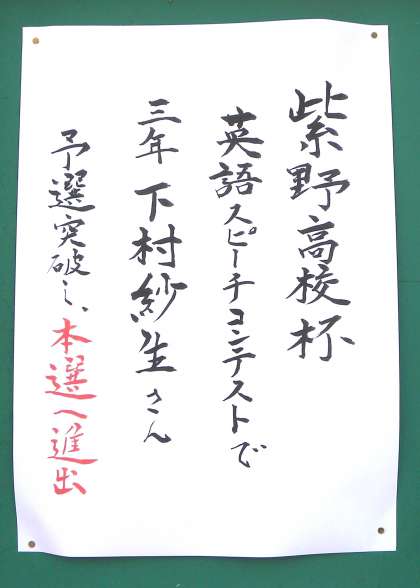 紫野高校杯
英語スピーチコンテストで
三年 下村紗生さん
予選突破し、本選へ進出